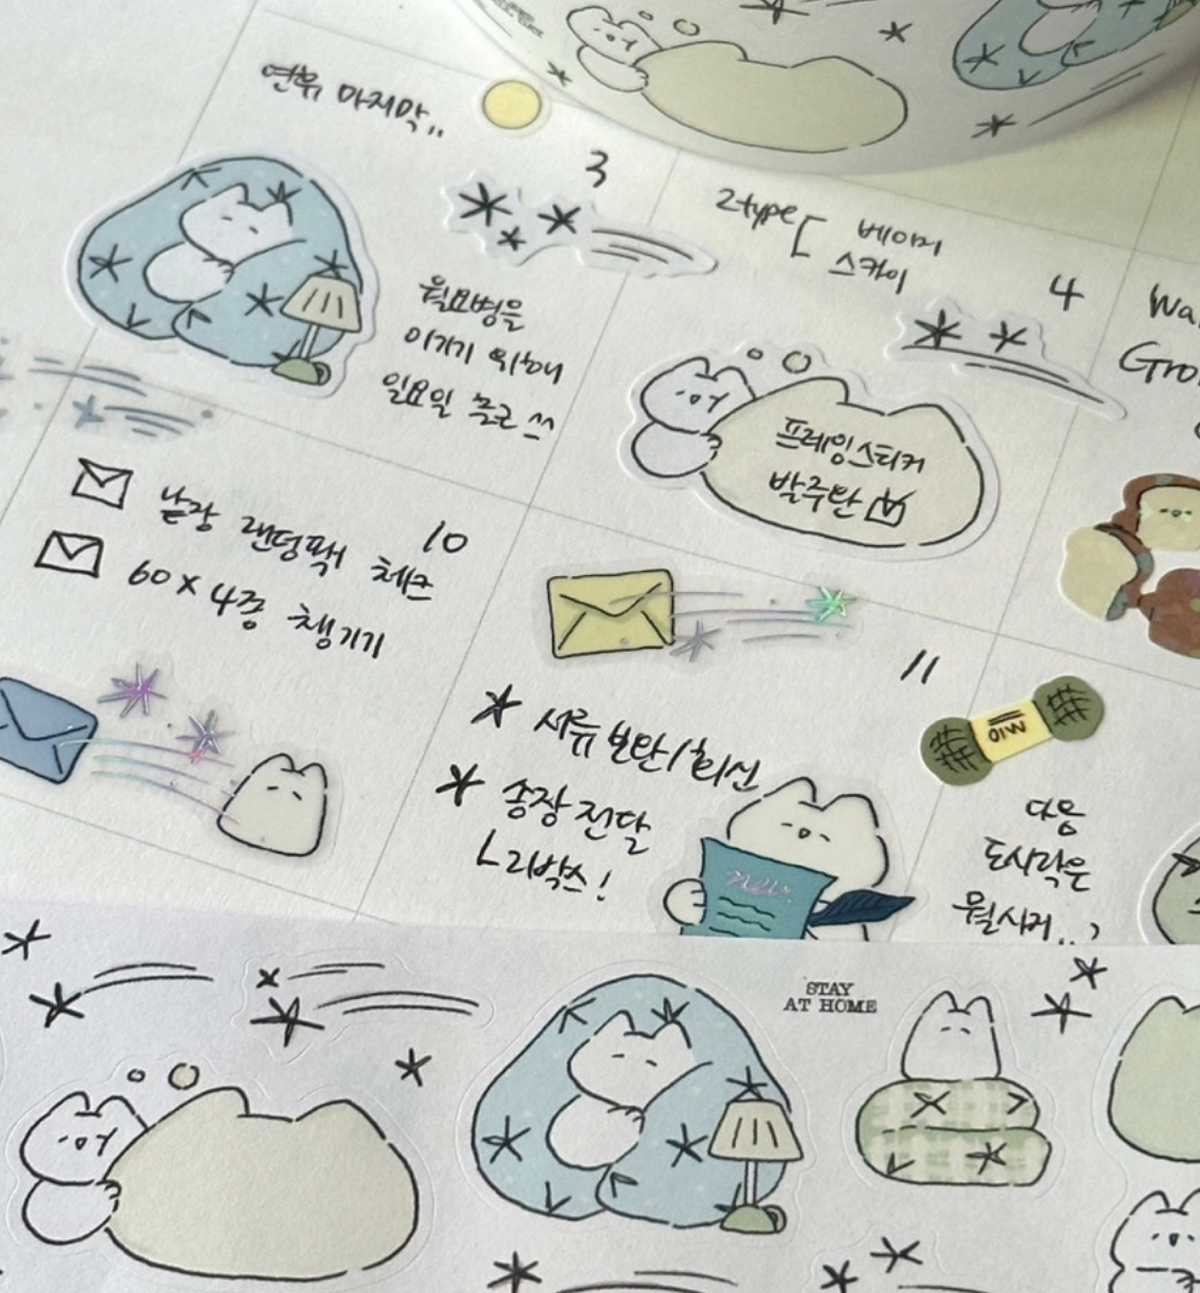 연휴 마지막..
3
월요병을
이기기 위해
일요일 출근 쓰
2type [ 베이지
스카이
4
프레임스티커
발주완
10
낱장 랜덤팩 체크
60 x 4종 챙기기
11
* 서류 보완/회신
* 송장 전달
ㄴ 2박스!
OIW
다음
도시락은
뭘사지..?
STAY
AT HOME